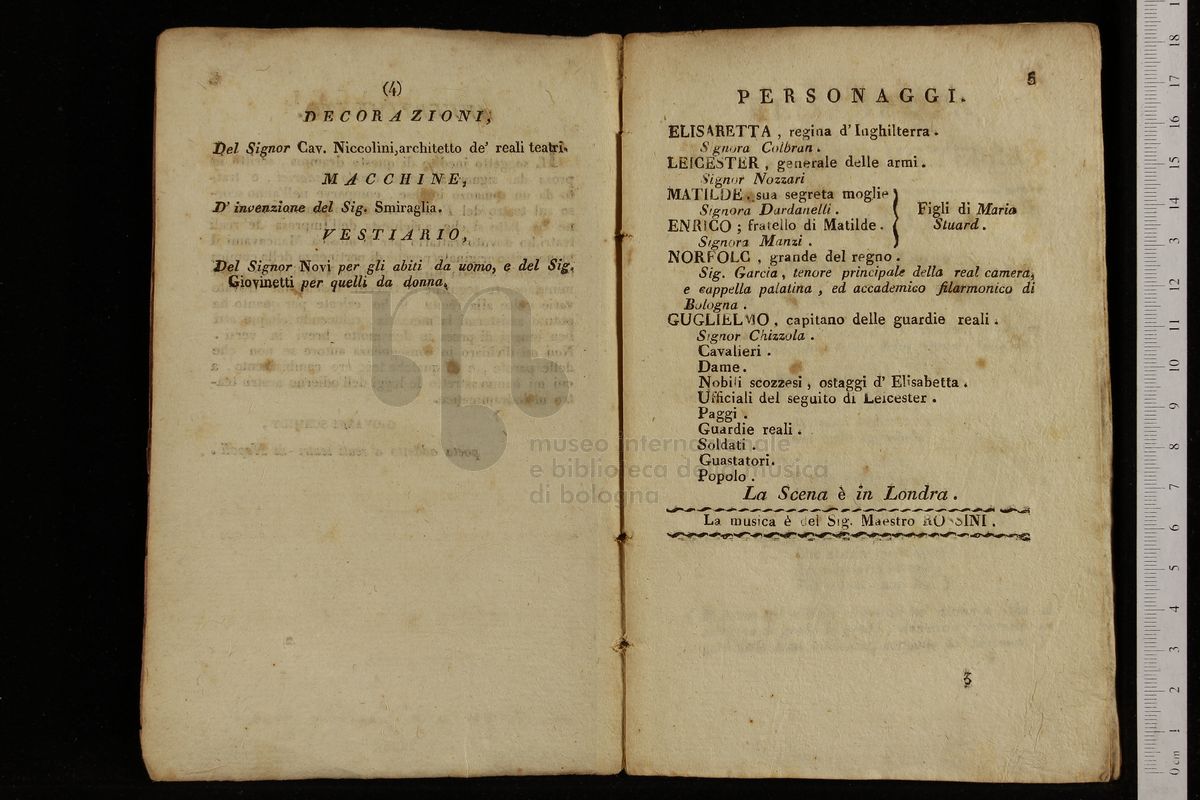 (4)
DECORAZIONI,
Del Signor Cav. Niccolini, architetto de' reali teatri.
MACCHINE,
D' invenzione del Sig. Smiraglia.
VESTIARIO,
Del Signor Novi per gli abiti da uomo, e del Sig.
Giovinetti per quelli da donna.
5
PERSONAGGI.
ELISABETTA, regina d' Inghilterra.
Signora Colbran.
LEICESTER, generale delle armi.
Signor Nozzari
MATILDE, sua segreta moglie
Signora Dardanelli.
ENRICO; fratello di Matilde.
Signora Manzi.
Figli di Maria
Stuard.
NORFOLC, grande del regno.
Sig. Garcia, tenore principale della real camera,
e cappella palatina, ed accademico filarmonico di
Bologna.
GUGLIELMO, capitano delle guardie reali.
Signor Chizzola.
Cavalieri.
Dame.
Nobili scozzesi, ostaggi d' Elisabetta.
Ufficiali del seguito di Leicester.
Paggi.
Guardie reali.
Soldati.
Guastatori.
Popolo.
La Scena è in Londra.
La musica è del Sig. Maestro ROSSINI.
3
museo internazionale
e biblioteca della musica
di bologna
0 cm 1 2 3 4 5 6 7 8 9 10 11 12 13 14 15 16 17 18